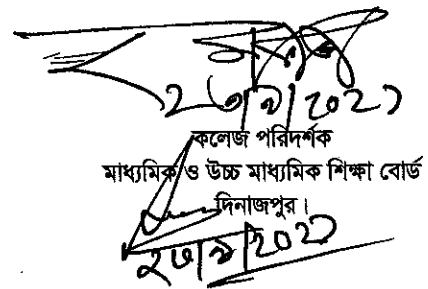 ২৩/৯/২০২১
কলেজ পরিদর্শক
মাধ্যমিক ও উচ্চ মাধ্যমিক শিক্ষা বোর্ড
দিনাজপুর।
২৩/৯/২০২১